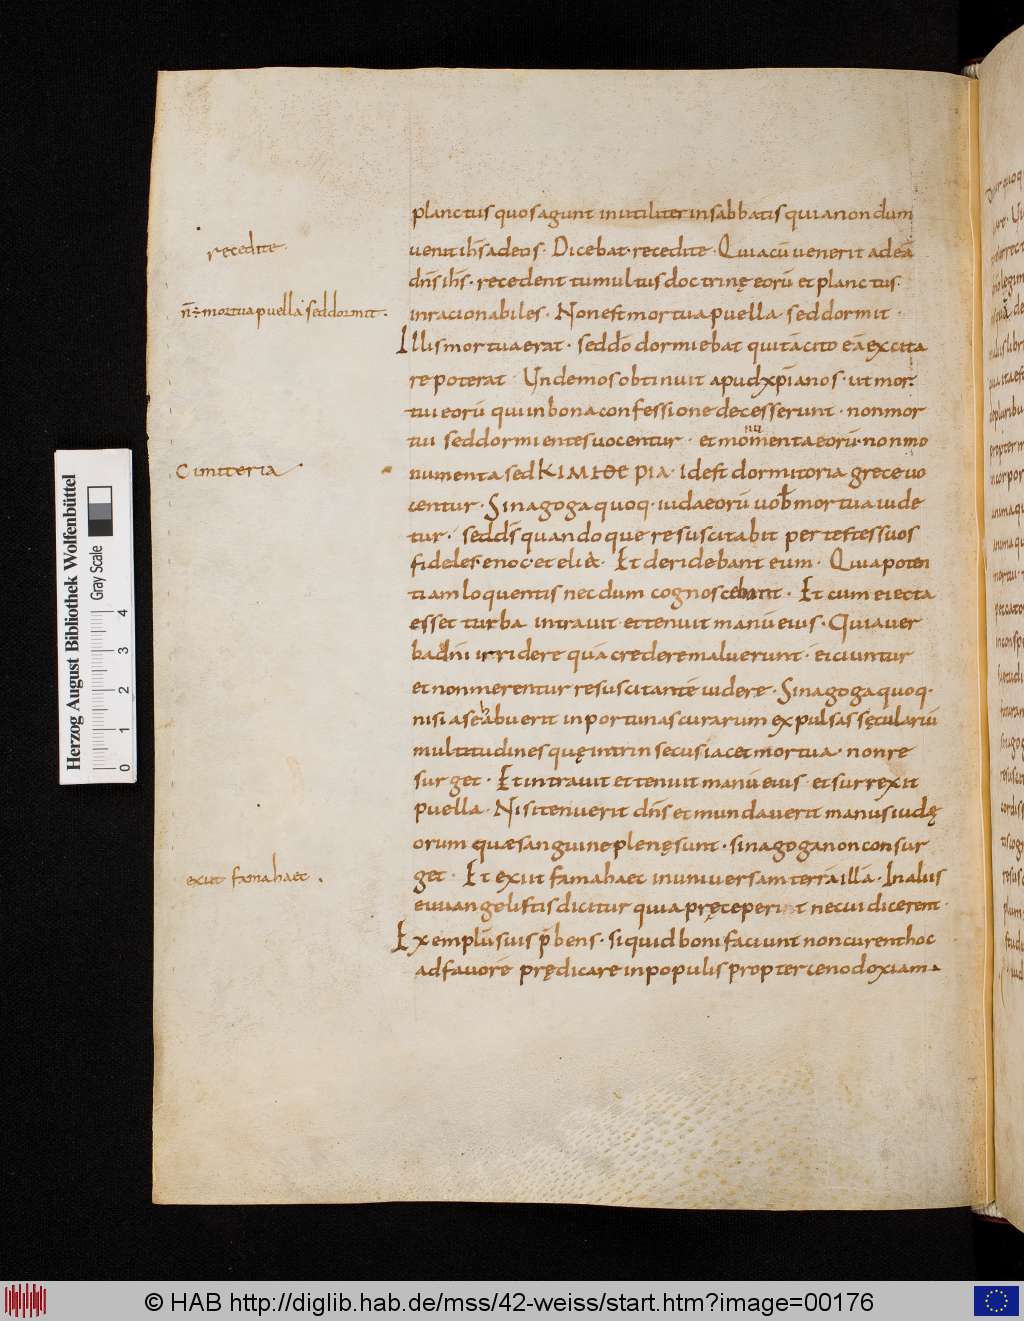 planctus quos agunt inutiliter insabbatis quia non dum
recedite.
uenit ihs adeos. Dicebat recedite. Quia cū uenerit ad eā
dn̄s ihs. recedent tumultus doctrinę eorū et planctus
n̄ ÷ mortua puella sed dormit.
inracionabiles. Non est mortua puella sed dormit.
Illis mortua erat. sed dō dormiebat qui tā cito eā excita
re poterat. Unde mos obtinuit apud xp̄ianos. ut mor
tui eorū qui in bona confessione decesserunt. non mor
tui sed dormientes uocentur. et momenta eorū non mo
nu
Cimiteria
numenta sed KIMIΘE PIA. Idest dormitoria grece uo
centur. Sinagoga quoq. iudaeorū uob mortua iude
tur. sed dn̄s quandoque resuscitabit per testes suos
fideles enoc et elia. Et deridebant eum. Quia poten
tiam loquentis nec dum cognoscebant. Et cum eiecta
esset turba intrauit et tenuit manū eius. Quia uer
ba dn̄i irridere quā credere maluerunt. eiciuntur
et non merentur resuscitantē uidere. Sinagoga quoq.
nisi a se abuerit inportunas curarum expulsas sęculariū
multitudines quę intrinsecus iacet mortua. non re
surget. Et intrauit et tenuit manū eius. et surrexit
puella. Nisi tenuerit dn̄s et mundauerit manus iudę
orum quæ sanguine plenę sunt. sinagoga non consur
exiit fama haec.
get. Et exiit fama haec in uniuersam terrā illā. In aliis
euuangelistis dicitur quia pręceperint ne cui dicerent.
Exemplū suis p̄bens. siquid boni faciunt non curent hoc
ad fauorē prędicare in populis propter cenodoxiam.
Herzog August Bibliothek Wolfenbüttel
Gray Scale
0 1 2 3 4
© HAB http://diglib.hab.de/mss/42-weiss/start.htm?image=00176